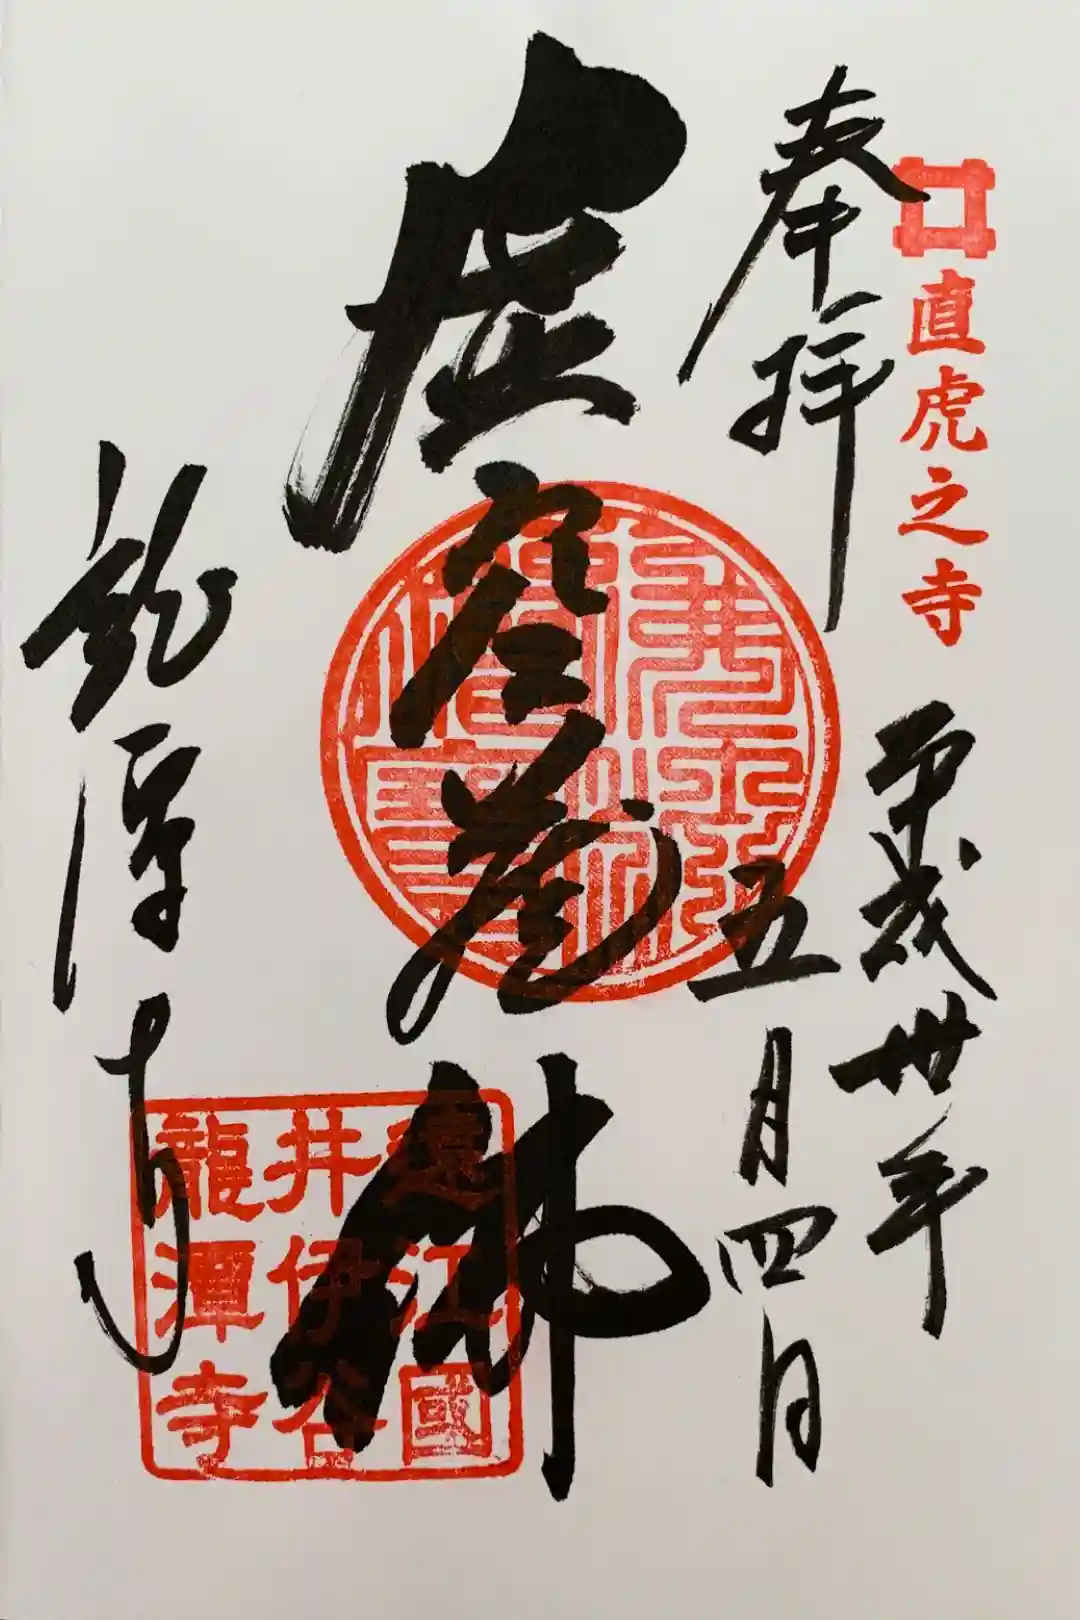 直虎之寺
奉拝
平成卅年
五月四日
虚空蔵佛
龍潭寺
遠江國
井伊谷
龍潭寺